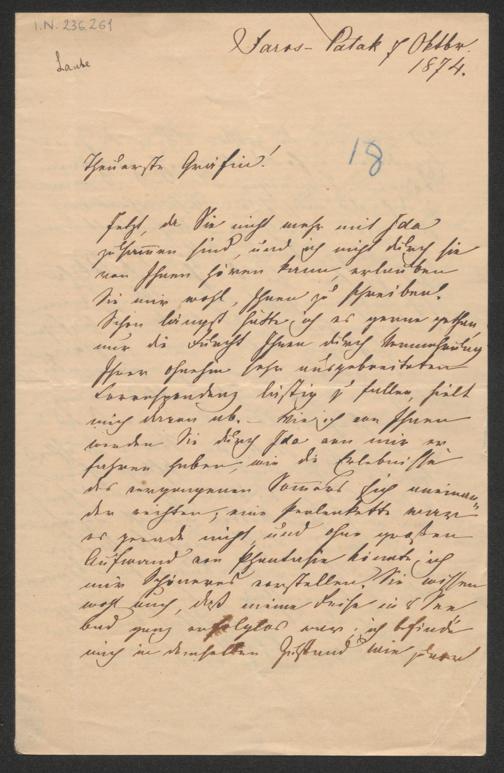 I.N. 236.261
Laube
Saros-Patak 7 Oktbr.
1874.
18
Theuerste Gräfin!
Jetzt, da Sie nicht mehr mit Ida
zusammen sind, und ich nicht durch sie
von Ihnen hören kann, erlauben
Sie mir wohl, Ihnen zu schreiben.
Schon längst hätte ich es gerne gethan
nur die Furcht Ihnen durch Vermehrung
Ihrer ohnehin sehr ausgebreiteten
Correspondenz lästig zu fallen, hielt
mich davon ab. – Wie ich von Ihnen
werden Sie durch Ida von mir er
fahren haben, wie die Erlebnisse
des vergangenen Sommers sich aneinan-
der reihten; eine Perlenkette war
es gerade nicht, und ohne großen
Aufwand von Phantasie könnte ich
mir Schöneres vorstellen. Sie wissen
wohl auch, daß meine Reise in's See
bad ganz erfolglos war; ich befinde
mich in demselben Zustand wie